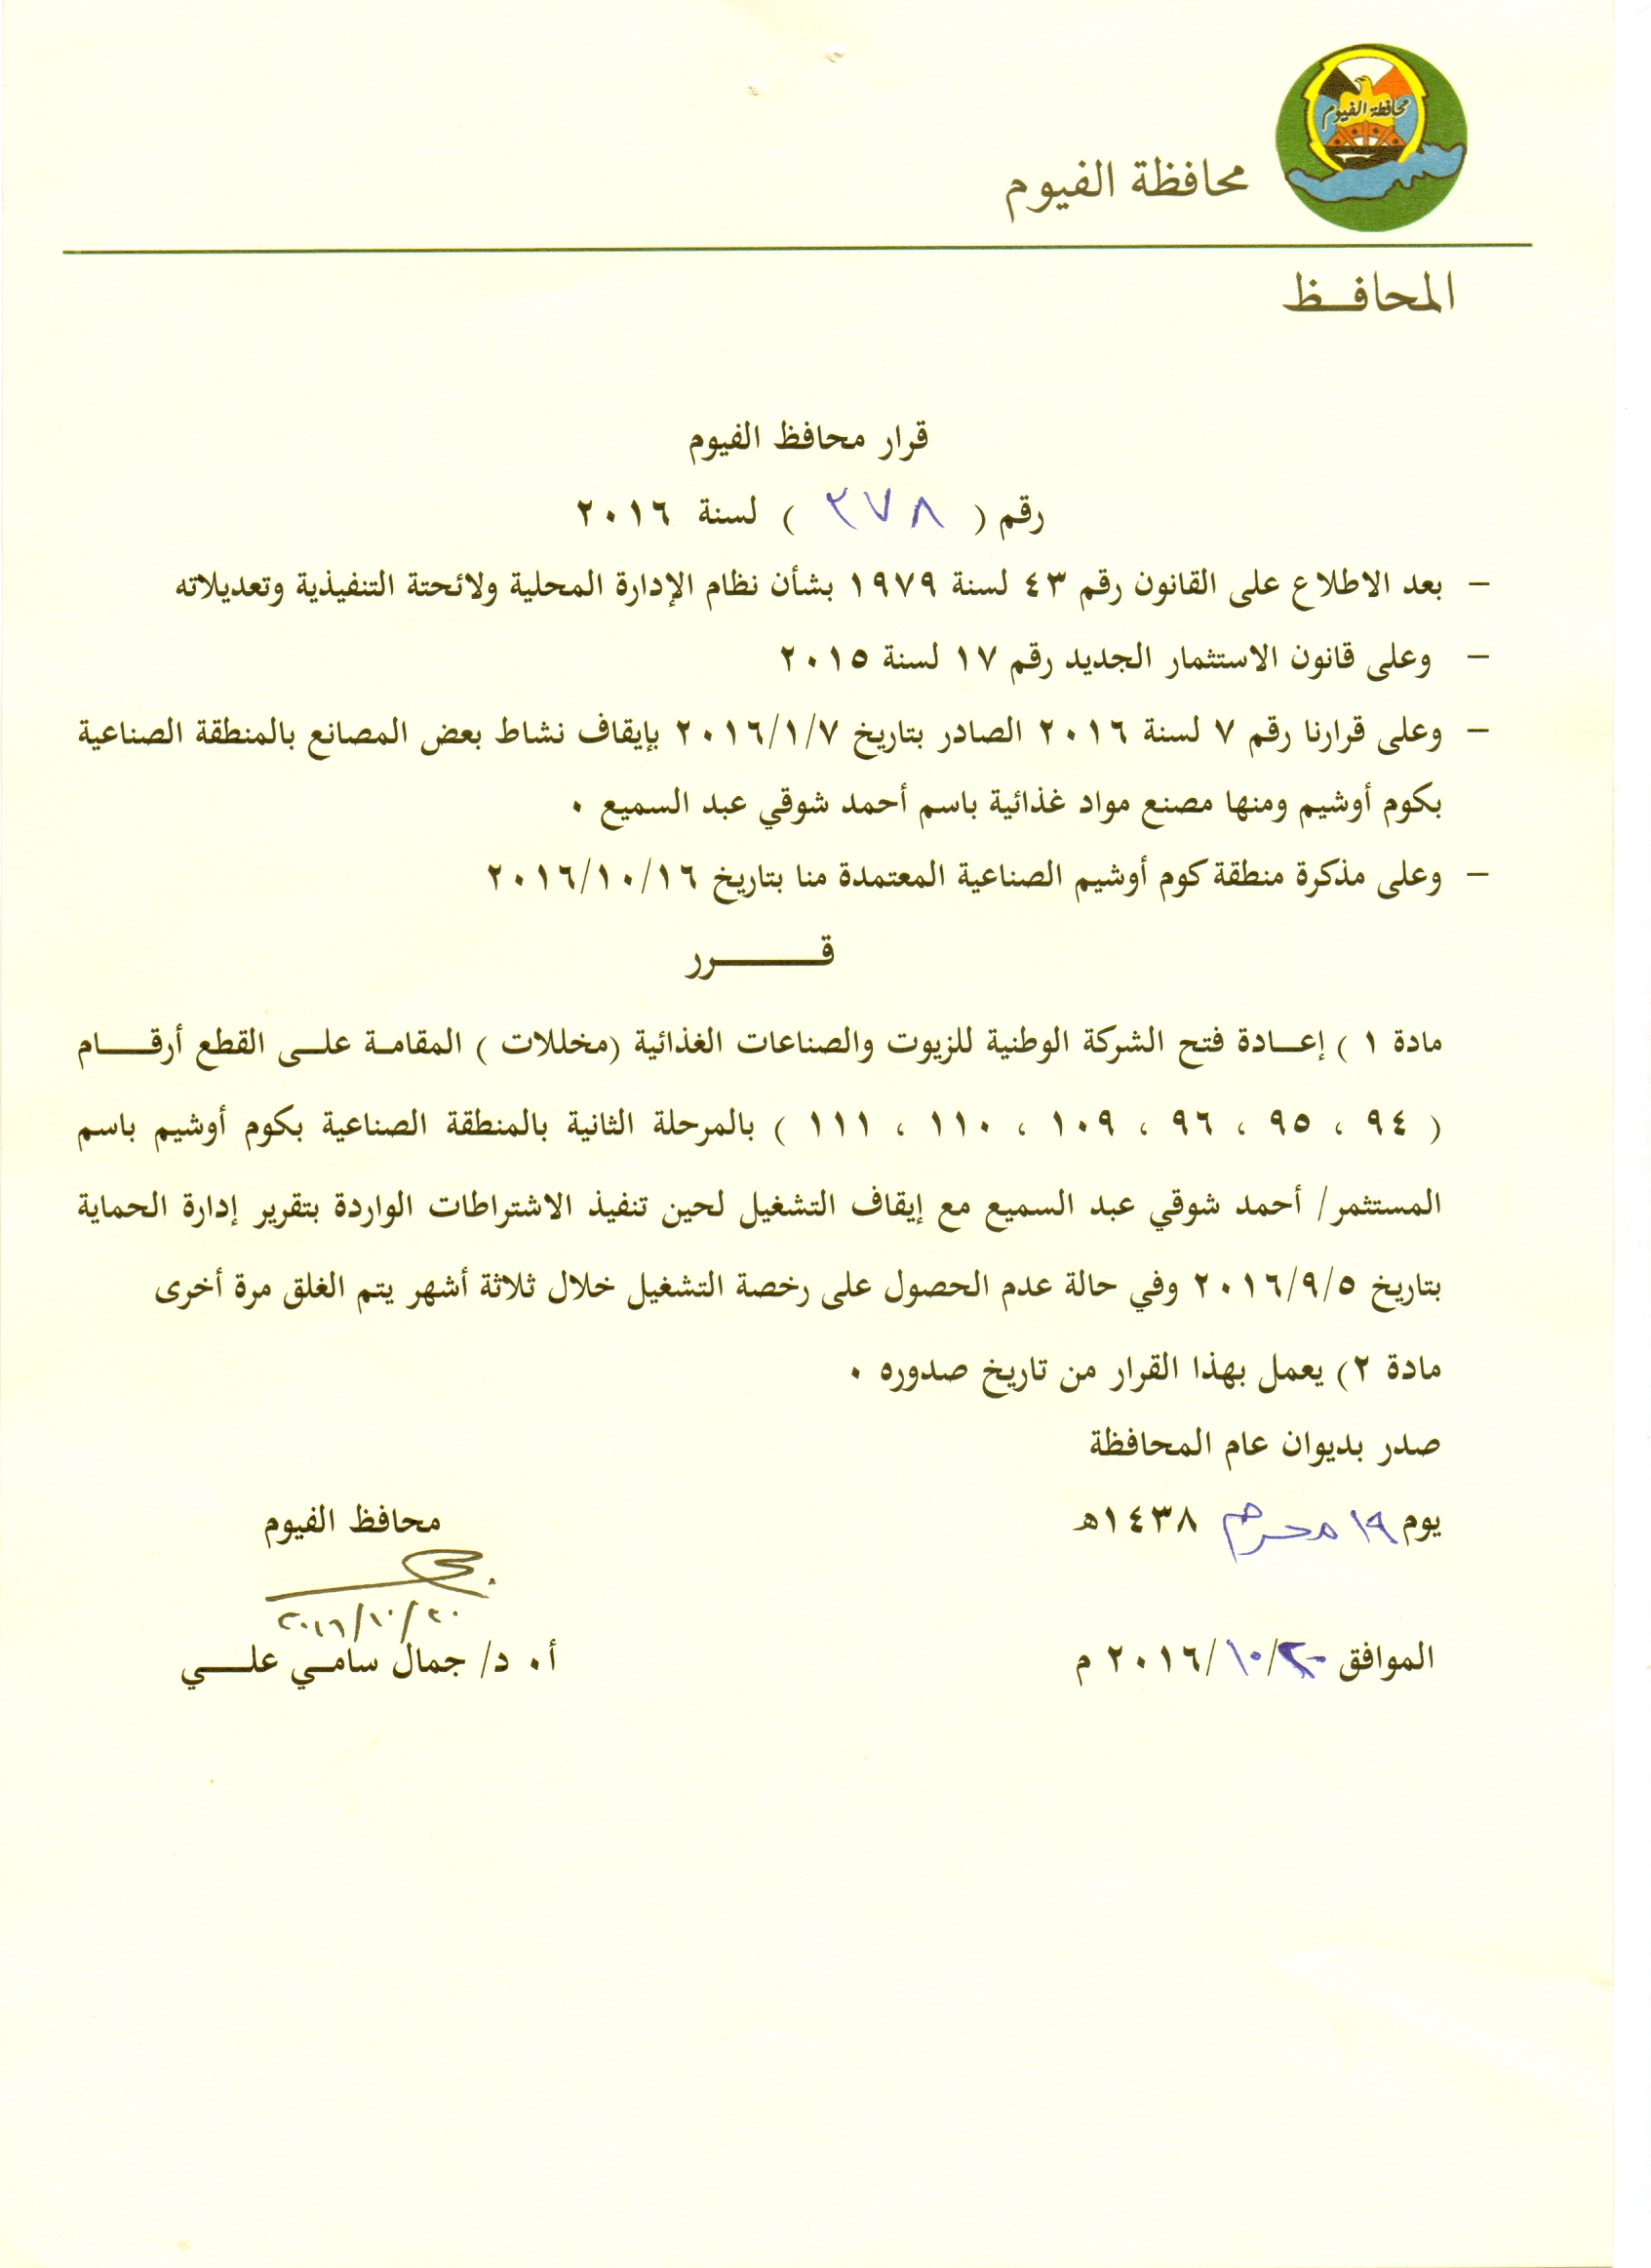 محافظة الفيوم
محافظة الفيوم
المحافـــظ
قرار محافظ الفيوم
رقم ( ٣٧٨ ) لسنة ٢٠١٦
– بعد الاطلاع على القانون رقم ٤٣ لسنة ١٩٧٩ بشأن نظام الإدارة المحلية ولائحتة التنفيذية وتعديلاته
– وعلى قانون الاستثمار الجديد رقم ١٧ لسنة ٢٠١٥
– وعلى قرارنا رقم ٧ لسنة ٢٠١٦ الصادر بتاريخ ٢٠١٦/١/٧ بإيقاف نشاط بعض المصانع بالمنطقة الصناعية
بكوم أوشيم ومنها مصنع مواد غذائية باسم أحمد شوقي عبد السميع ٠
– وعلى مذكرة منطقة كوم أوشيم الصناعية المعتمدة منا بتاريخ ٢٠١٦/١٠/١٦
قـــــــرر
مادة ١ ) إعـــادة فتح الشركة الوطنية للزيوت والصناعات الغذائية (مخللات ) المقامـة علـــى القطع أرقـــــام
( ٩٤ ، ٩٥ ، ٩٦ ، ١٠٩ ، ١١٠ ، ١١١ ) بالمرحلة الثانية بالمنطقة الصناعية بكوم أوشيم باسم
المستثمر/ أحمد شوقي عبد السميع مع إيقاف التشغيل لحين تنفيذ الاشتراطات الواردة بتقرير إدارة الحماية
بتاريخ ٢٠١٦/٩/٥ وفي حالة عدم الحصول على رخصة التشغيل خلال ثلاثة أشهر يتم الغلق مرة أخرى
مادة ٢) يعمل بهذا القرار من تاريخ صدوره ٠
صدر بديوان عام المحافظة
يوم ١٩ محرم ١٤٣٨هـ
محافظ الفيوم
٢٠١٦/١٠/٢٠
الموافق ٢٠١٦/١٠/٢٠ م
أ٠ د/ جمال سامـــي علـــــي